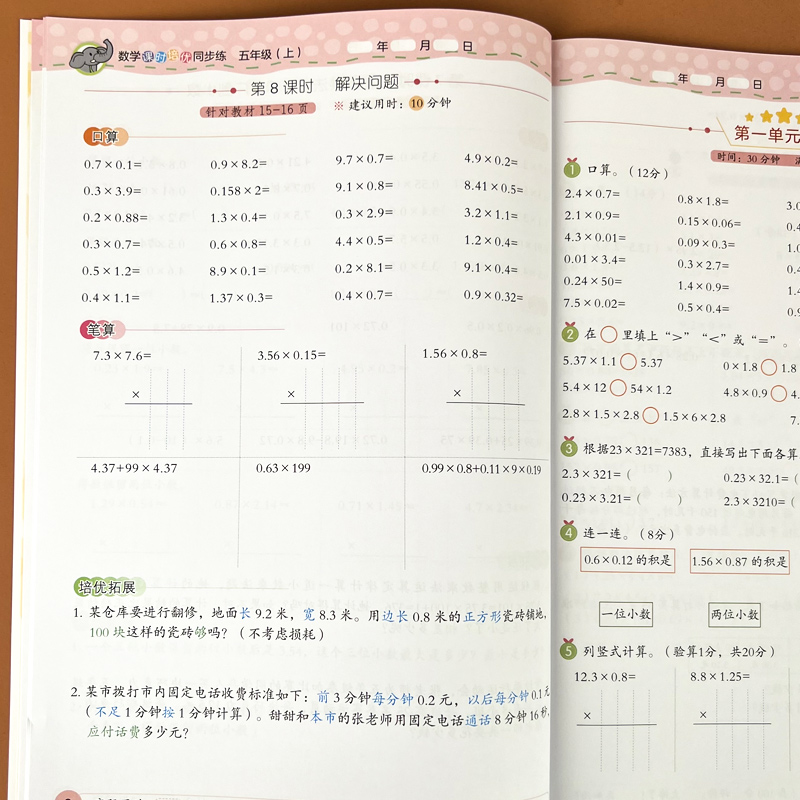 数学课时培优同步练 五年级（上）
年 月 日
第8课时 解决问题
针对教材15-16页 ※ 建议用时：10分钟
口算
0.7×0.1= 0.9×8.2= 9.7×0.7= 4.9×0.2=
0.3×3.9= 0.158×2= 9.1×0.8= 8.41×0.5=
0.2×0.88= 1.3×0.4= 0.3×2.9= 3.2×1.1=
0.3×0.7= 0.6×0.8= 4.4×0.5= 1.2×0.4=
0.5×1.2= 8.9×0.1= 0.2×8.1= 9.1×0.4=
0.4×1.1= 1.37×0.3= 0.4×0.7= 0.9×0.32=
笔算
7.3×7.6= 3.56×0.15= 1.56×0.8=
× × ×
4.37+99×4.37 0.63×199 0.99×0.8+0.11×9×0.19
培优拓展
1. 某仓库要进行翻修，地面长9.2米，宽8.3米。用边长0.8米的正方形瓷砖铺地，
100块这样的瓷砖够吗？（不考虑损耗）
2. 某市拨打市内固定电话收费标准如下：前3分钟每分钟0.2元，以后每分钟0.1元
（不足1分钟按1分钟计算）。甜甜和本市的张老师用固定电话通话8分钟16秒，
应付话费多少元？
年 月 日
第一单元
时间：30分钟
1 口算。（12分）
2.4×0.7= 0.8×1.8=
2.1×0.9= 0.15×0.06=
4.3×0.01= 0.09×0.3=
0.01×3.4= 0.3×2.7=
0.24×50= 1.4×0.9=
7.5×0.02= 0.5×0.4=
2 在○里填上“>”“<”或“=”。
5.37×1.1○5.37 0×1.8○1.8
5.4×12○54×1.2 4.8×0.9○4.
2.8×1.5×2.8○1.5×6×2.8 7.
3 根据23×321=7383，直接写出下面各算
2.3×321=（ ） 0.23×32.1=（
0.23×3.21=（ ） 2.3×3210=（
4 连一连。（8分）
0.6×0.12的积是 1.56×0.87的积是
一位小数 两位小数
5 列竖式计算。（验算1分，共20分）
12.3×0.8= 8.8×1.25=
× ×